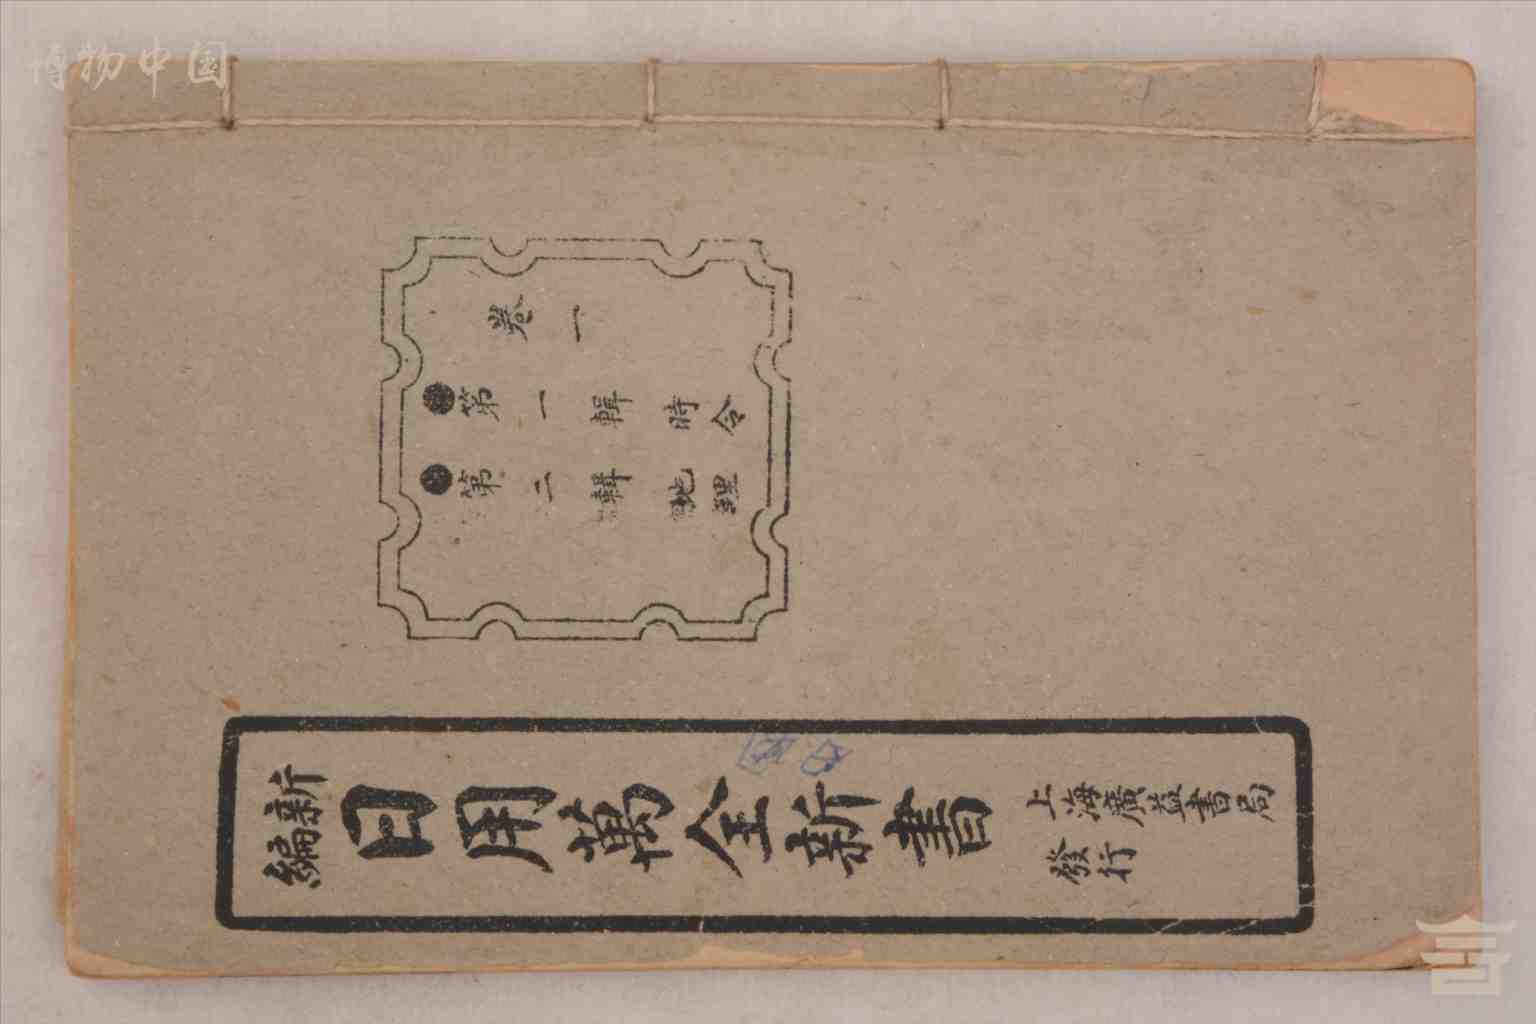 博物中国
新編
日用萬全新書
上海廣益書局
發行
卷一
●第一輯時令
●第二輯地理